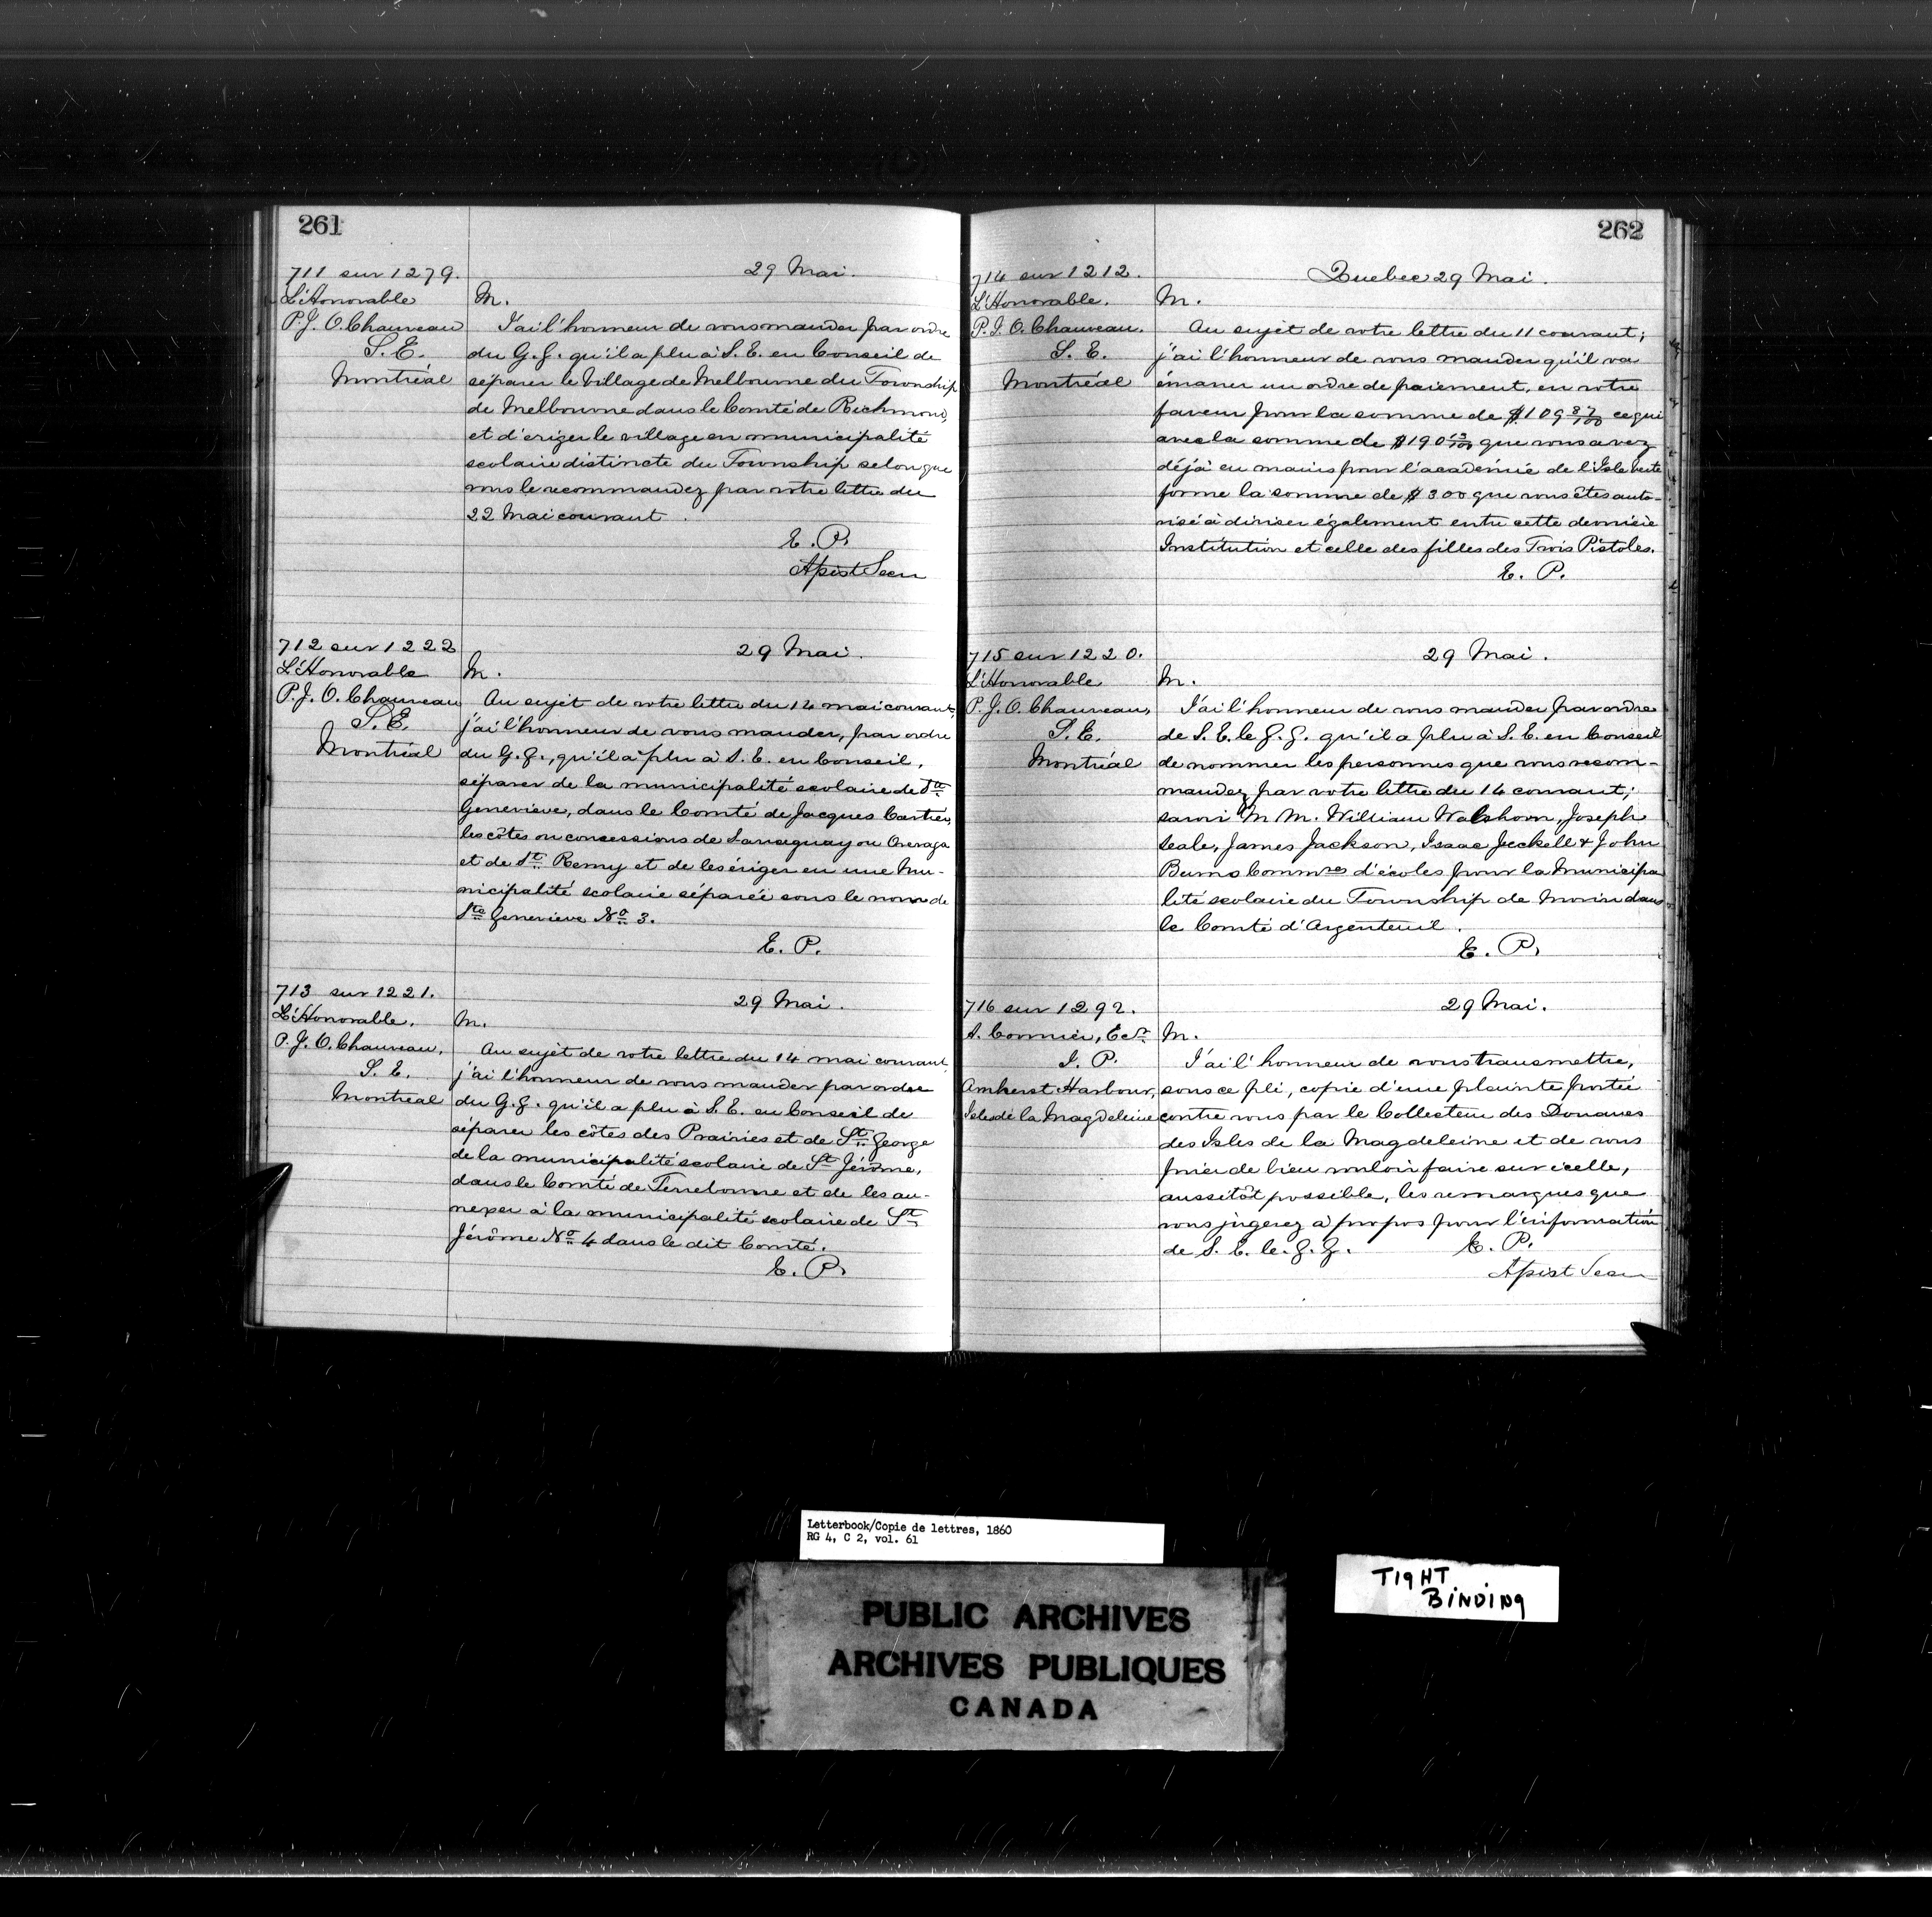 261
711 sur 1279.
29 Mai.
L'Honorable
P. J. O. Chauveau
S. E.
Montréal
M.
J'ai l'honneur de vous mander par ordre
du G. G. qu'il a plu à S. E. en Conseil de
séparer le Village de Melbourne du Township
de Melbourne dans le Comté de Richmond,
et d'eriger le village en municipalité
scolaire distincte du Township selon que
vous le recommandez par votre lettre du
22 Mai courant.
E. P.
Apist Secr
712 sur 1222
29 Mai.
L'Honorable
P. J. O. Chauveau
S. E.
Montréal
M.
Au sujet de votre lettre du 14 mai courant,
j'ai l'honneur de vous mander, par ordre
du G. G., qu'il a plu à S. E. en Conseil,
séparer de la municipalité scolaire de Ste
Geneviève, dans le Comté de Jacques Cartier,
les côtes ou concessions de ou
et de St. Remy et de les ériger en une Mu-
nicipalité scolaire séparée sous le nom de
Ste Geneviève No 3.
E. P.
713 sur 1221.
29 Mai.
L'Honorable.
P. J. O. Chauveau.
S. E.
Montreal
M.
Au sujet de votre lettre du 14 mai courant
j'ai l'honneur de vous mander par ordre
du G. G. qu'il a plu à S. E. en Conseil de
séparer les côtes des Prairies et de St. George
de la municipalité scolaire de St Jérôme,
dans le Comté de Terrebonne et de les an-
nexer à la municipalité scolaire de St
Jérôme No 4 dans le dit Comté.
E. P.
262
714 sur 1212.
Quebec 29 Mai.
L'Honorable.
P. J. O. Chauveau.
S. E.
Montréal
M.
Au sujet de votre lettre du 11 courant;
j'ai l'honneur de vous mander qu'il va
émaner un ordre de paiement, en votre
faveur pour la somme de $109 87/100 ce qui
avec la somme de $190 13/100 que vous avez
déjà en mains pour l'académie de l'Isle verte
forme la somme de $300 que vous êtes auto-
risé à diviser également entre cette dernière
Institution et celle des filles des Trois Pistoles.
E. P.
715 sur 1220.
29 Mai.
L'Honorable
P. J. O. Chauveau,
S. E.
Montréal
M.
J'ai l'honneur de vous mander par ordre
de S. E. le G. G. qu'il a plu à S. E. en Conseil
de nommer les personnes que vous recom-
mandez par votre lettre du 14 courant;
savoir M M. William Joseph
Seale, James Jackson, Isaac Jeckell & John
Burns Commres d'écoles pour la Municipa
lité scolaire du Township de Morin dans
le Comté d'Argenteuil.
E. P.
716 sur 1292.
29 Mai.
A. Cormier, Ecr
J. P.
Amherst Harbour,
Isles de la Magdeleine
M.
J'ai l'honneur de vous transmettre,
sous ce pli, copie d'une plainte portée
contre vous par le Collecteur des Douanes
des Isles de la Magdeleine et de vous
prier de bien vouloir faire sur icelle,
aussitôt possible, les remarques que
vous jugerez à propos pour l'information
de S. E. le G. G.
E. P.
Apist Secr
Letterbook/Copie de lettres, 1860
RG 4, C 2, vol. 61
PUBLIC ARCHIVES
ARCHIVES PUBLIQUES
CANADA
TIGHT
BINDING